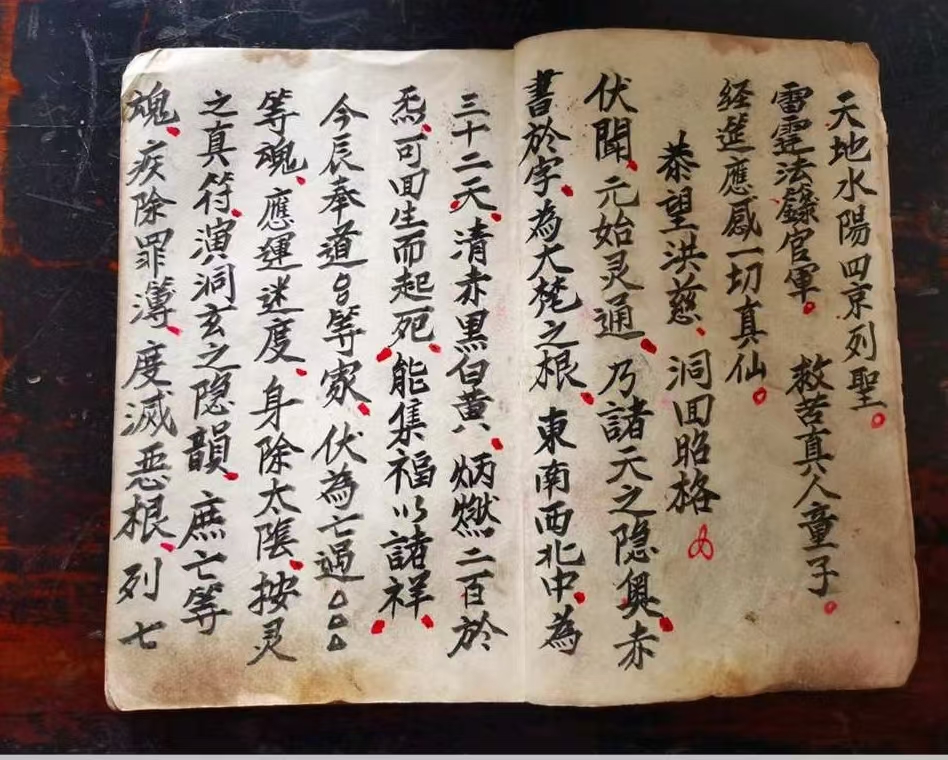 天地水陽四京列聖。
雷霆法籙官軍。 救苦真人童子。
経進應感一切真仙。
恭望洪慈、洞回昭格
伏聞、元始灵通、乃諸天之隐奥、赤
書於字、為大梵之根、東南西北中、為
三十二天、清赤黒白黄、炳燃二百於
炁、可回生而起死、能集福以諸祥、
今辰奉道〇〇等家、伏為亡過△△△
等魂、應運迷度、身除太陰、按灵
之真符、演洞玄之隐韻、庶亡等
魂、疾除罪薄、度滅恶根、列七